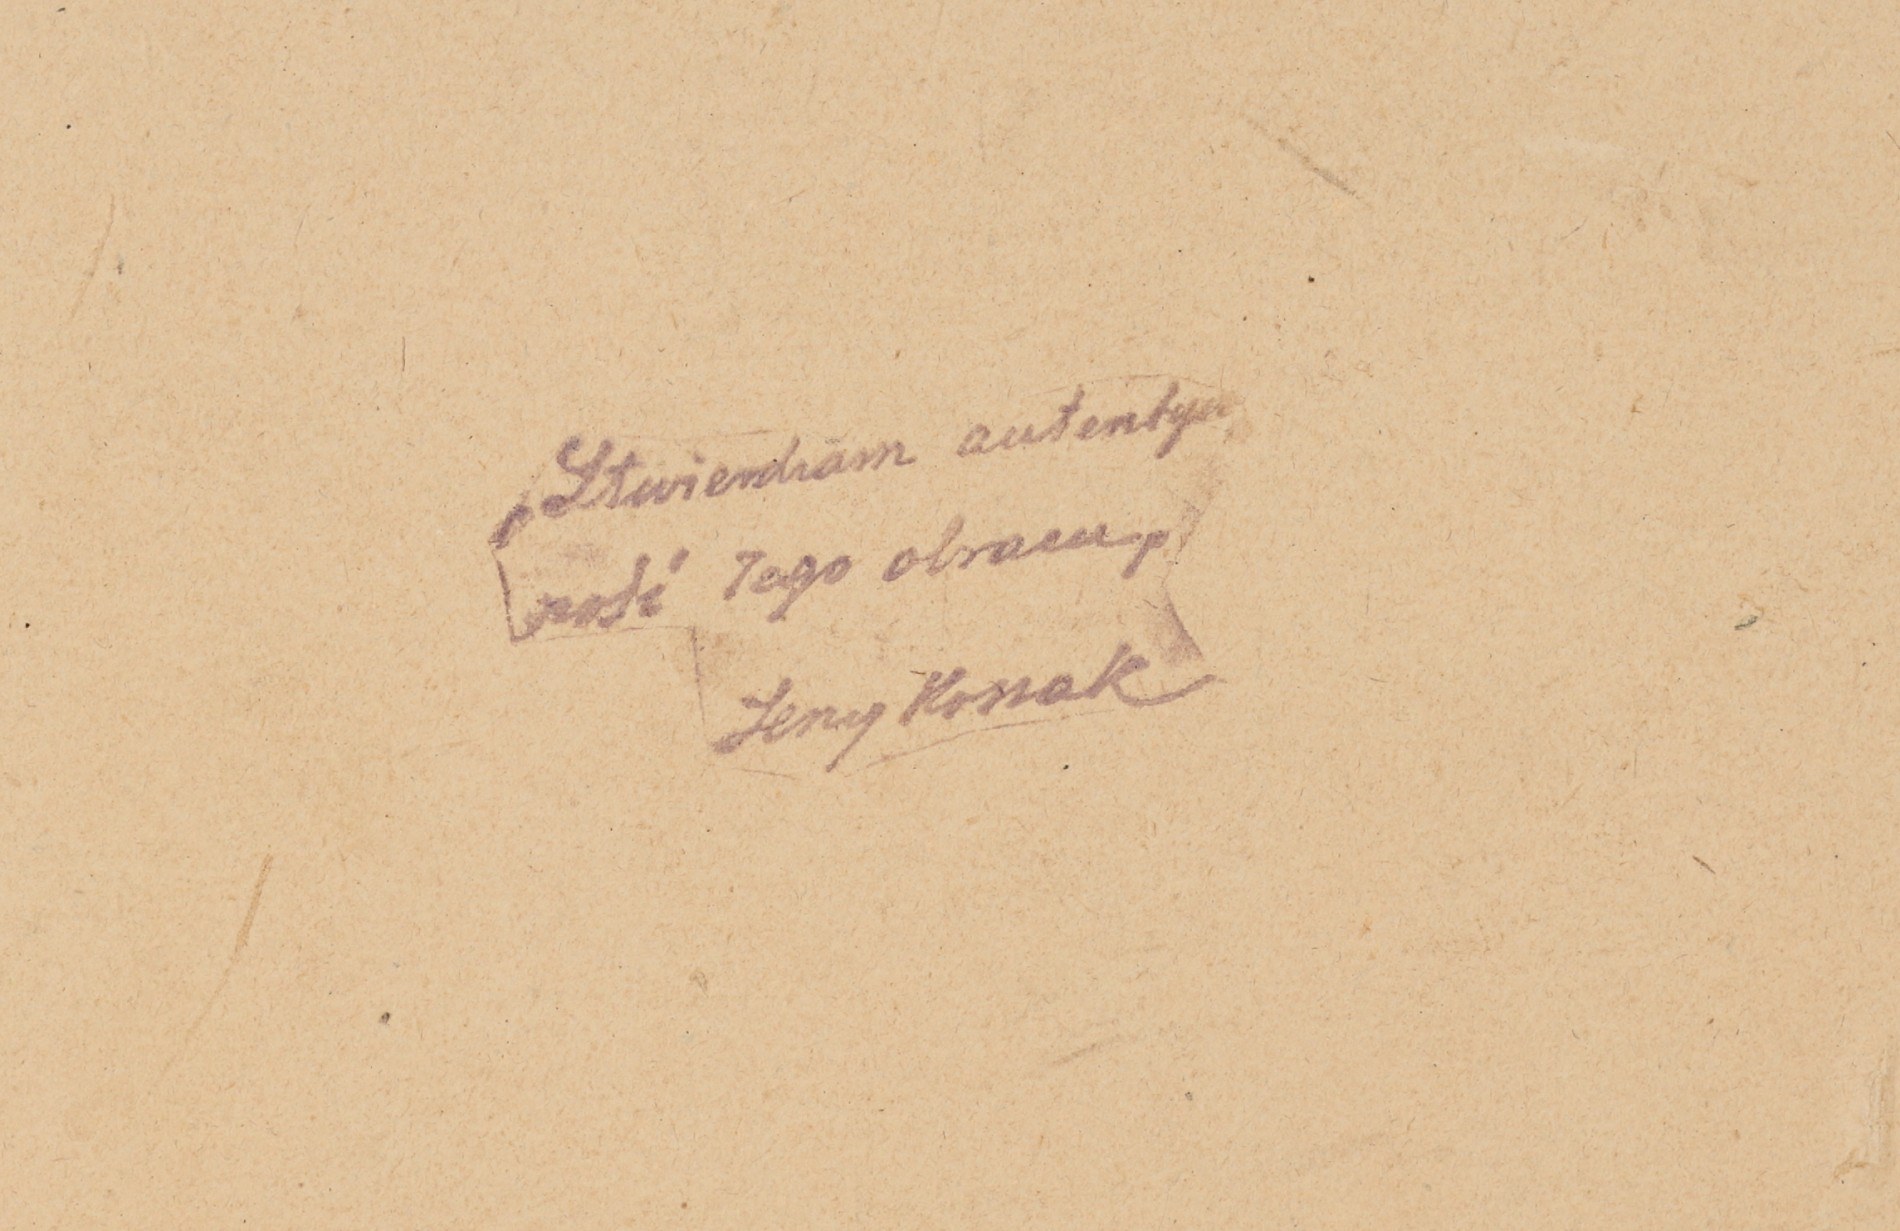 Stwierdzam autentycz
ność tego obrazu
Jerzy Kossak